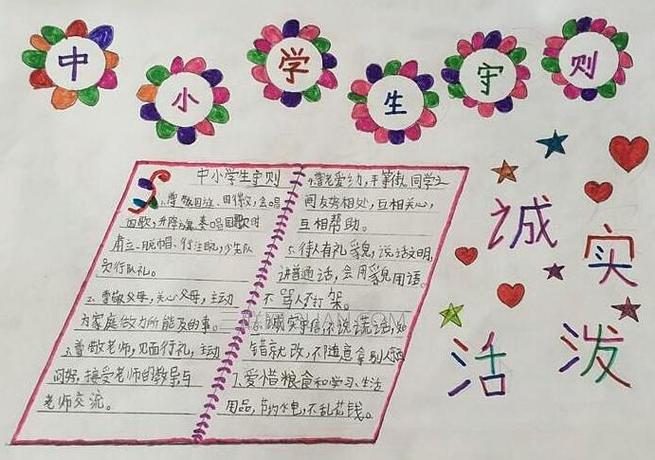 中小学生守则
中小学生守则
1.尊敬国旗、国徽,会唱
国歌,升降旗、奏唱国歌时
肃立、脱帽、行注目礼,少先队
员行队礼。
2.尊敬父母,关心父母,主动
为家庭做力所能及的事。
3.尊敬老师,见面行礼,主动
问好,接受老师的教导,与
老师交流。
4.尊老爱幼,平等待同学之
间友好相处,互相关心,
互相帮助。
5.待人有礼貌,说话文明,
讲普通话,会用礼貌用语。
不骂人不打架。
6.诚实守信不说谎话,知
错就改,不随意拿别人
7.爱惜粮食和学习、生活
用品,节约水电,不乱花钱。
诚实
活泼